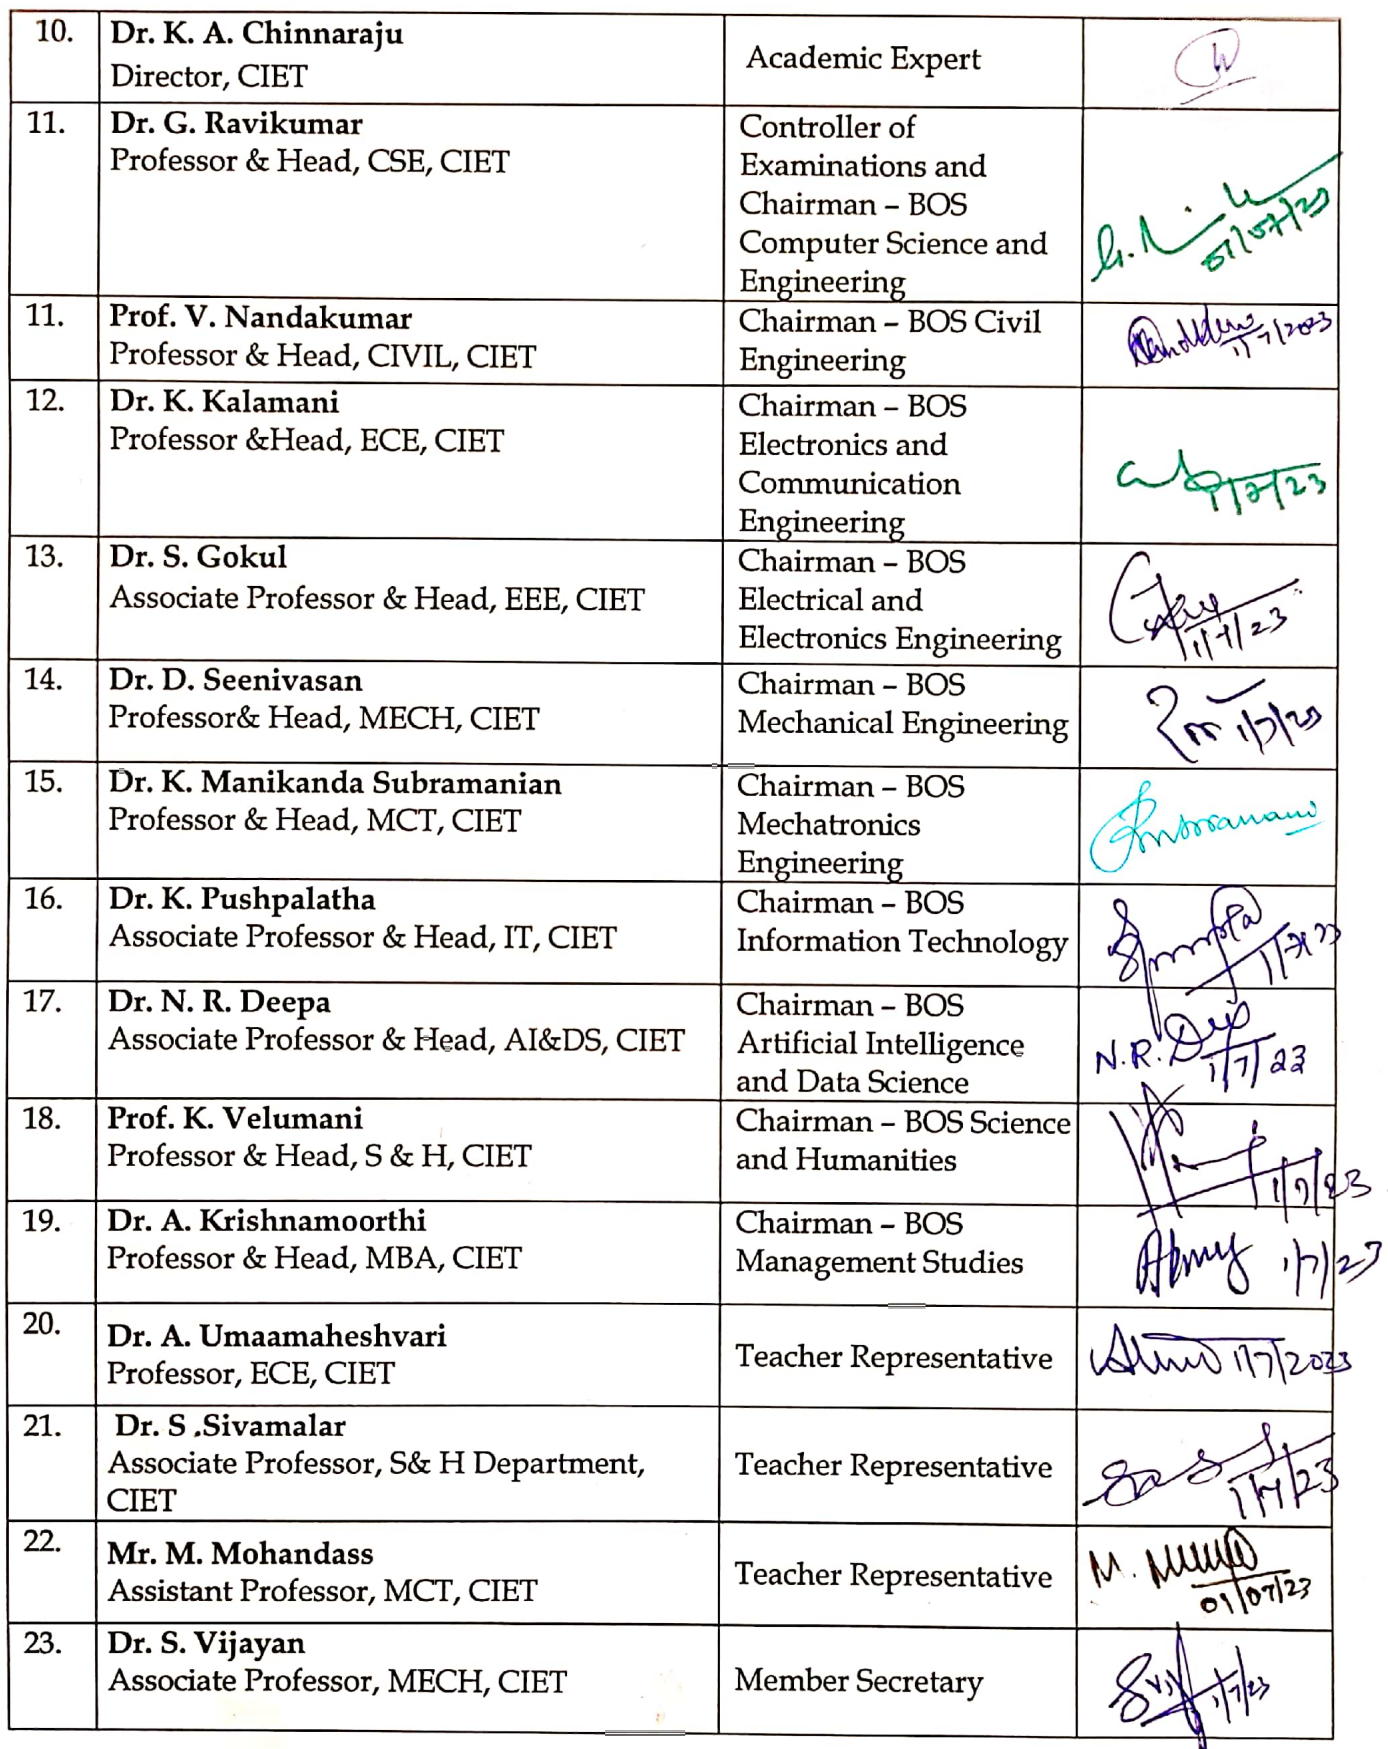 10. Dr. K. A. Chinnaraju
Director, CIET
Academic Expert
11. Dr. G. Ravikumar
Professor & Head, CSE, CIET
Controller of
Examinations and
Chairman – BOS
Computer Science and
Engineering
01/07/23
11. Prof. V. Nandakumar
Professor & Head, CIVIL, CIET
Chairman – BOS Civil
Engineering
1/7/2023
12. Dr. K. Kalamani
Professor &Head, ECE, CIET
Chairman – BOS
Electronics and
Communication
Engineering
1/7/23
13. Dr. S. Gokul
Associate Professor & Head, EEE, CIET
Chairman – BOS
Electrical and
Electronics Engineering
1/7/23
14. Dr. D. Seenivasan
Professor& Head, MECH, CIET
Chairman – BOS
Mechanical Engineering
1/7/23
15. Dr. K. Manikanda Subramanian
Professor & Head, MCT, CIET
Chairman – BOS
Mechatronics
Engineering
16. Dr. K. Pushpalatha
Associate Professor & Head, IT, CIET
Chairman – BOS
Information Technology
1/7/23
17. Dr. N. R. Deepa
Associate Professor & Head, AI&DS, CIET
Chairman – BOS
Artificial Intelligence
and Data Science
N.R.
1/7/23
18. Prof. K. Velumani
Professor & Head, S & H, CIET
Chairman – BOS Science
and Humanities
1/7/23
19. Dr. A. Krishnamoorthi
Professor & Head, MBA, CIET
Chairman – BOS
Management Studies
1/7/23
20. Dr. A. Umaamaheshvari
Professor, ECE, CIET
Teacher Representative
1/7/2023
21. Dr. S .Sivamalar
Associate Professor, S& H Department,
CIET
Teacher Representative
1/7/23
22. Mr. M. Mohandass
Assistant Professor, MCT, CIET
Teacher Representative
M.
01/07/23
23. Dr. S. Vijayan
Associate Professor, MECH, CIET
Member Secretary
1/7/23